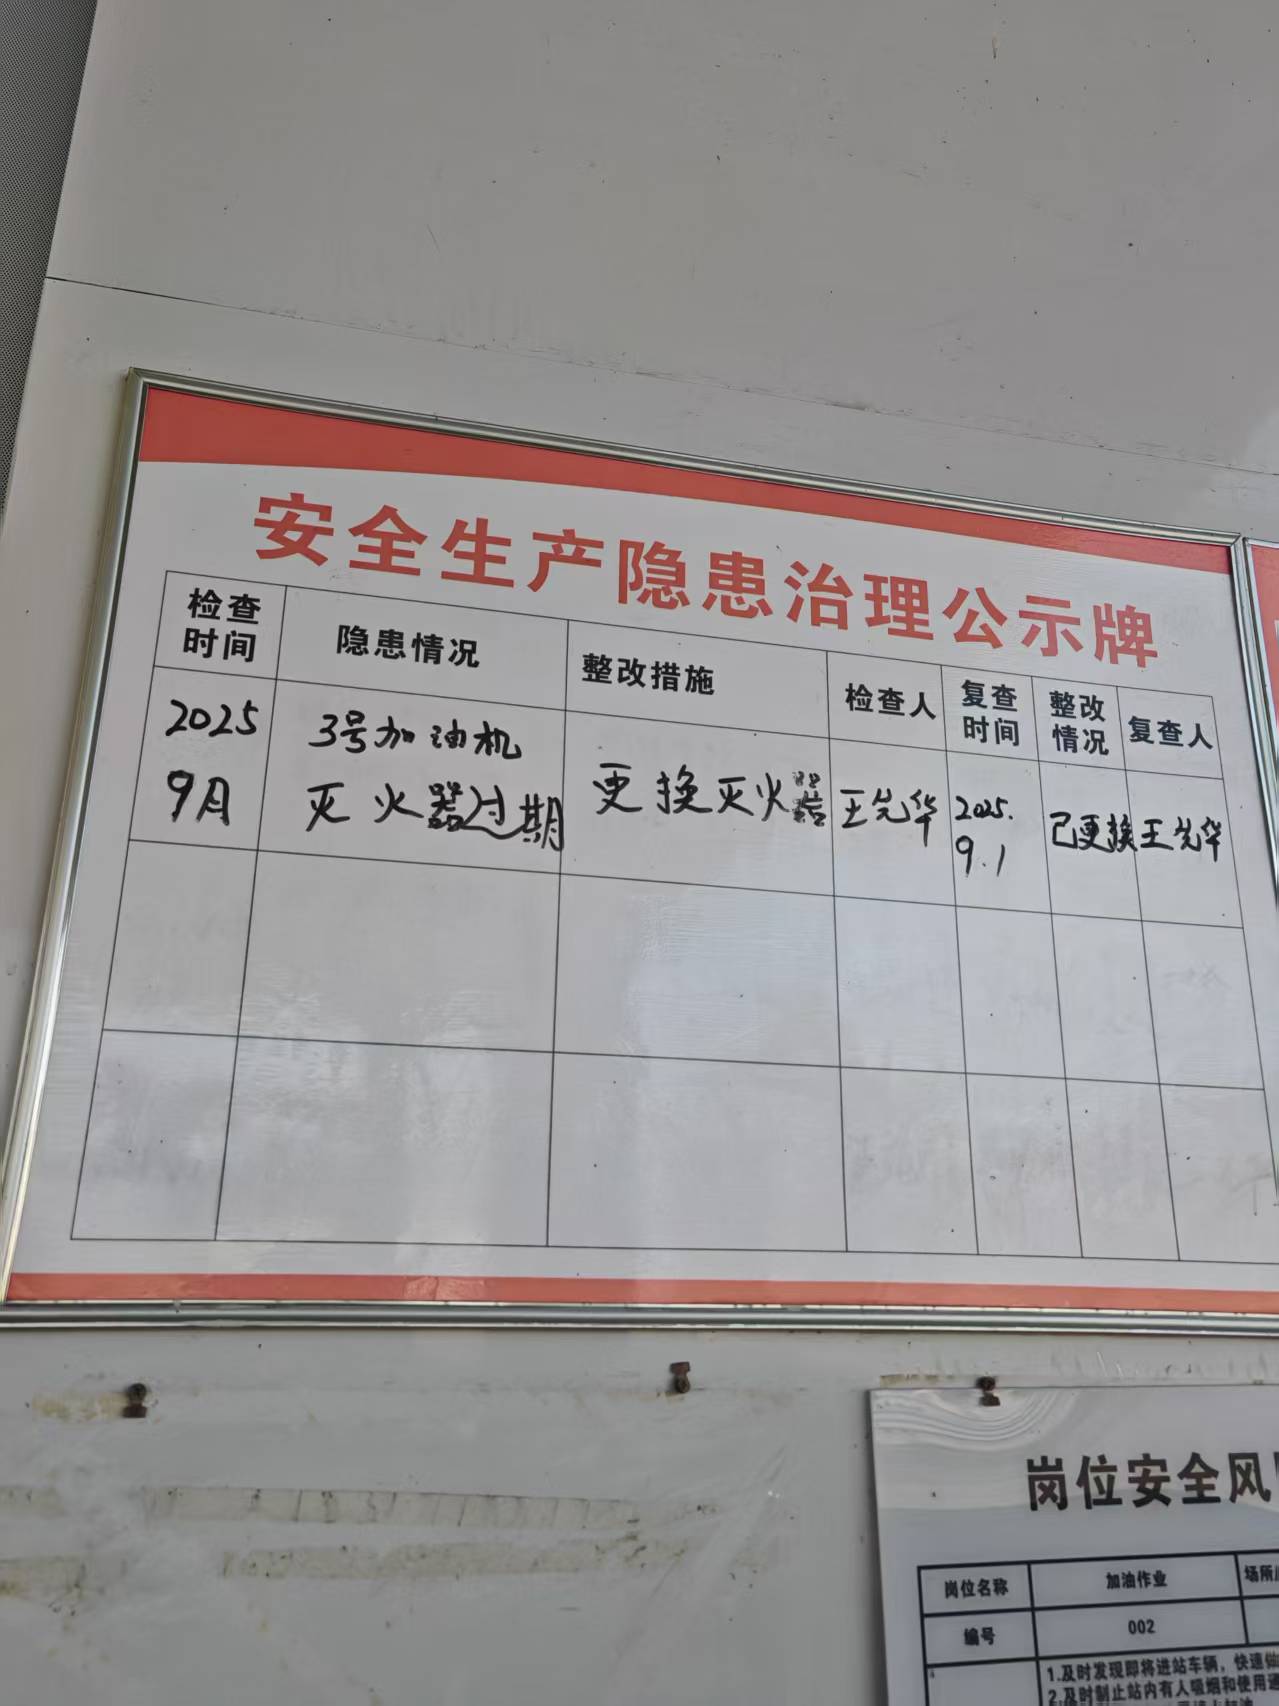 安全生产隐患治理公示牌
检查时间 隐患情况 整改措施 检查人 复查时间 整改情况 复查人
2025 9月 3号加油机灭火器过期 更换灭火器 王先华 2025.9.1 已更换 王先华
岗位安全风
岗位名称 加油作业 场所
编号 002
1.及时发现即将进站车辆，快速
2.及时制止站内有人吸烟和使用